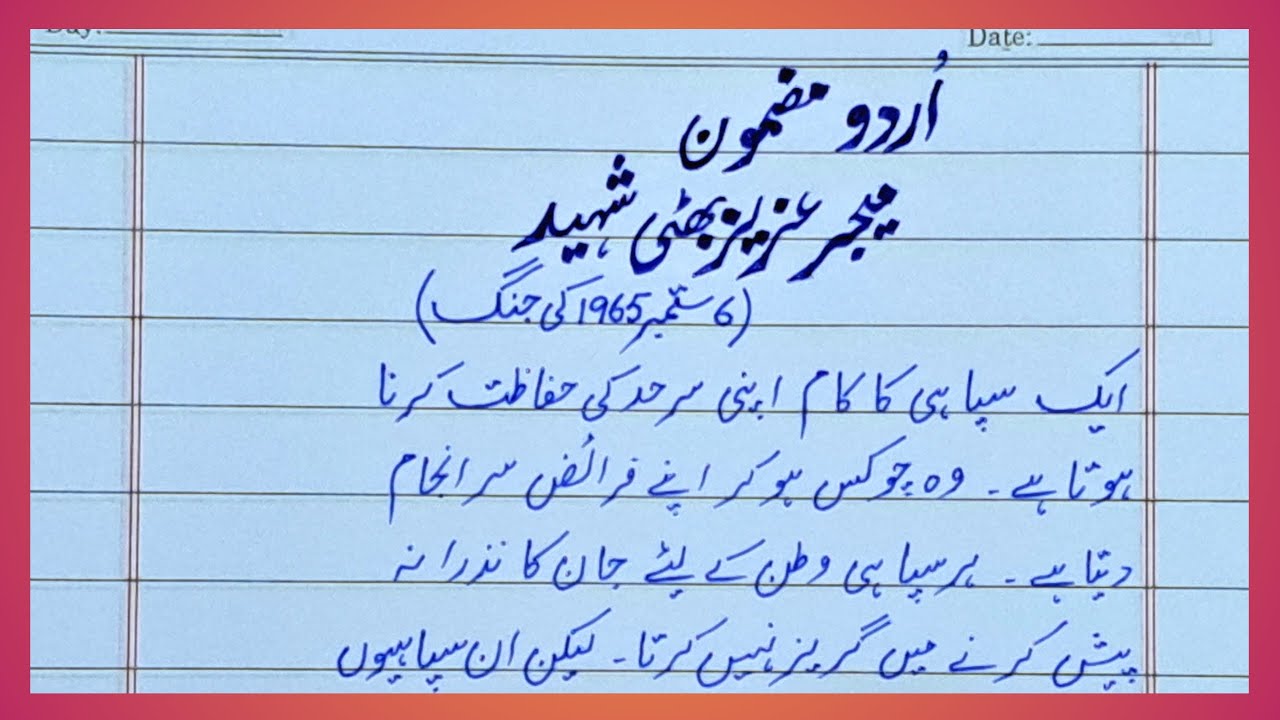 Day:
Date:
اُردو مضمون
میجر عزیز بھٹی شہید
(6 ستمبر 1965 کی جنگ)
ایک سپاہی کا کام اپنی سرحد کی حفاظت کرنا
ہوتا ہے۔ وہ چوکس ہو کر اپنے فرائض سر انجام
دیتا ہے۔ ہر سپاہی وطن کے لیئے جان کا نذرانہ
پیش کرنے میں گریز نہیں کرتا۔ لیکن ان سپاہیوں